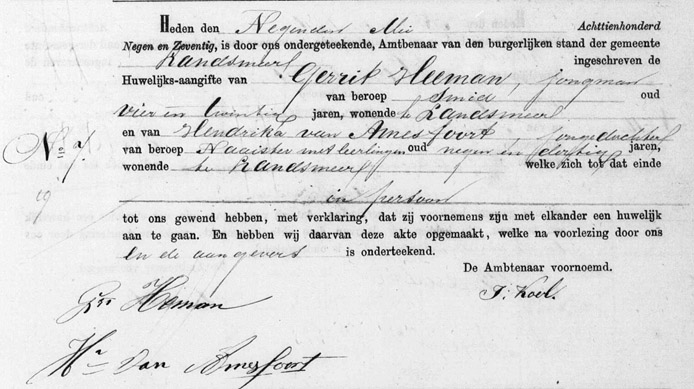 Heden den Negenden Mei Achttienhonderd
Negen en Zeventig, is door ons ondergeteekende, Amtbenaar van den burgerlijken stand der gemeente
Landsmeer ingeschreven de
Huwelijks-aangifte van Gerrit Heeman, jongman
van beroep Smid oud
vier en twintig jaren, wonende te Landsmeer
en van Hendrika van Amesfoort jongedochter
No 7.
van beroep Naaister met leerlingen oud negen en dertig jaren,
wonende te Landsmeer welke zich tot dat einde
19
in persoon
tot ons gewend hebben, met verklaring, dat zij voornemens zijn met elkander een huwelijk
aan te gaan. En hebben wij daarvan deze akte opgemaakt, welke na voorlezing door ons
en de aangevers is onderteekend.
De Ambtenaar voornoemd.
Grt Heman
J. Koel.
Hn van Amesfoort